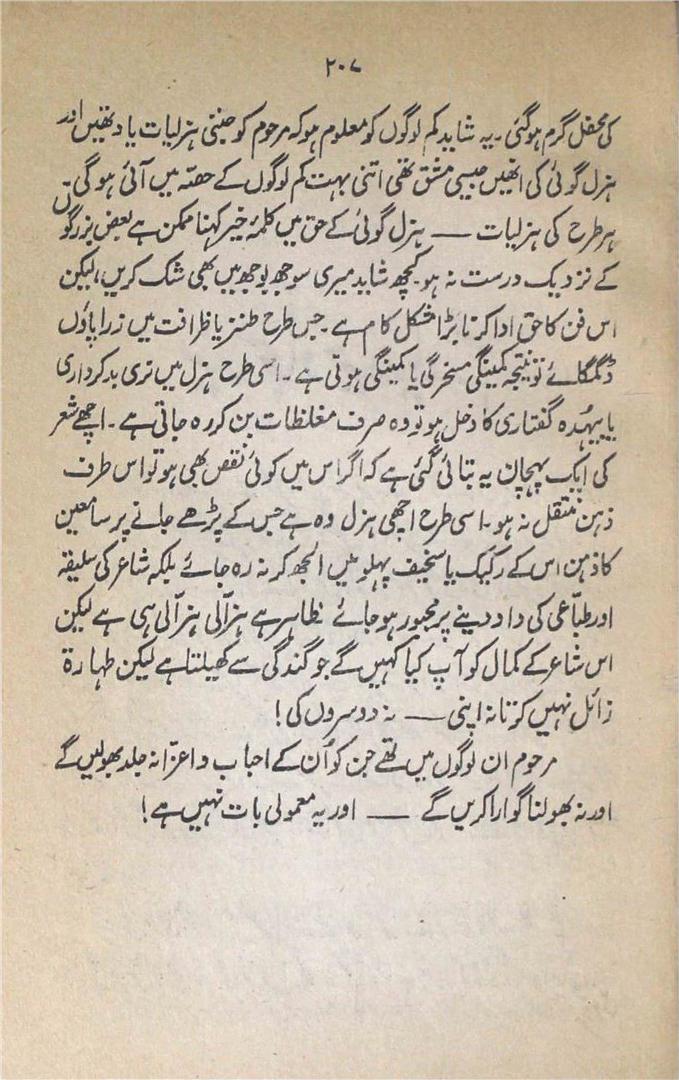 ۲۰۷
کی محفل گرم ہوگئی۔ یہ شاید کم لوگوں کو معلوم ہو کہ مرحوم کو جتنی ہزلیات یاد تھیں اور
ہزل گوئی کی انھیں جیسی مشق تھی اتنی بہت کم لوگوں کے حصّہ میں آئی ہوگی
ہر طرح کی ہزلیات —— ہزل گوئی کے حق میں کلمۂ خیر کہنا ممکن ہے بعض بزرگوں
کے نزدیک درست نہ ہو۔ کچھ شاید میری سوجھ بوجھ میں بھی شک کریں، لیکن
اس فن کا حق ادا کرنا بڑا مشکل کام ہے۔ جس طرح طنز یا ظرافت میں ذرا پاؤں
ڈگمگائے تو نتیجہ کمینگی مسخرگی یا کمینگی ہوتی ہے۔ اسی طرح ہزل میں نری بدکرداری
یا بیہُدہ گفتاری کا دخل ہو تو وہ صرف مغلظات بن کر رہ جاتی ہے۔ اچھے شعر
کی ایک پہچان یہ بتائی گئی ہے کہ اگر اس میں کوئی نقص بھی ہو تو اس طرف
ذہن منتقل نہ ہو۔ اسی طرح اچھی ہزل وہ ہے جس کے پڑھے جانے پر سامعین
کا ذہن اس کے رکیک یا سخیف پہلو میں الجھ کر نہ رہ جائے بلکہ شاعر کی سلیقہ
اور طبّاعی کی داد دینے پر مجبور ہو جائے ظاہر ہے ہزالی ہزالی ہی ہے لیکن
اس شاعر کے کمال کو آپ کیا کہیں گے جو گندگی سے کھیلتا ہے لیکن طہارۃ
زائل نہیں کرتا نہ اپنی —— نہ دوسروں کی!
مرحوم ان لوگوں میں تھے جن کو اُن کے احباب و اعزّا نہ جلد بھولیں گے
اور نہ بھولنا گوارا کریں گے —— اور یہ معمولی بات نہیں ہے!